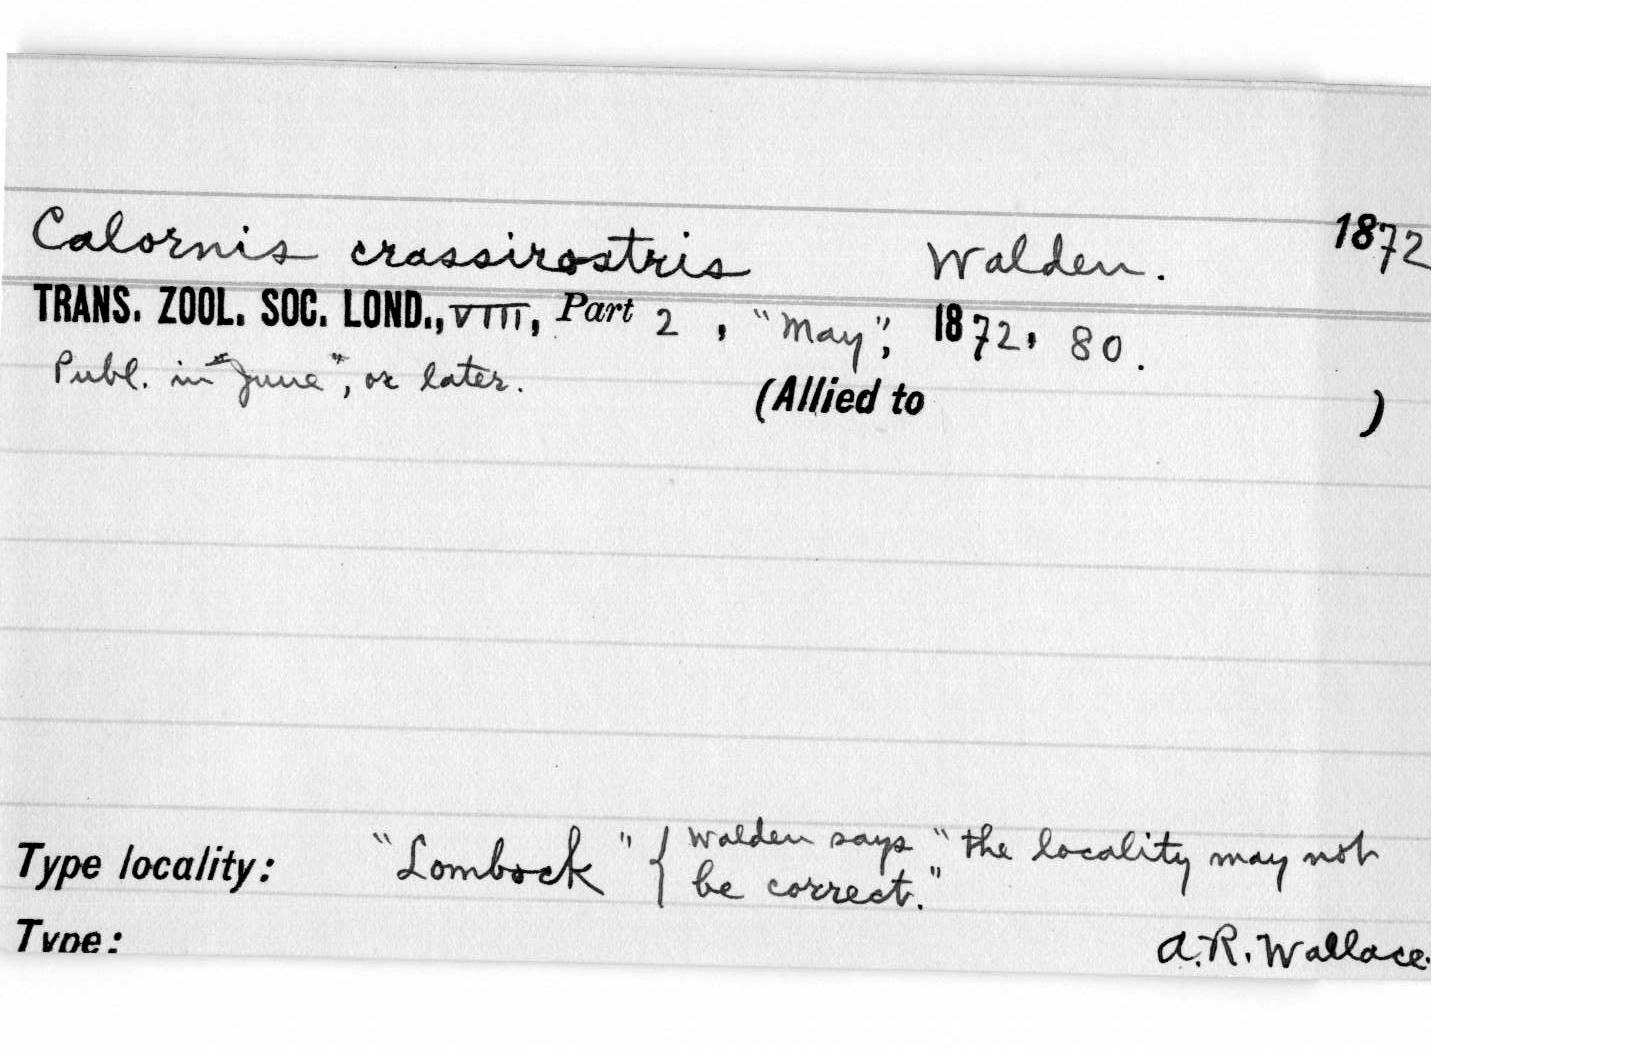 Calornis crassirostris Walden. 1872
TRANS. ZOOL. SOC. LOND., VIII, Part 2 , "May", 1872, 80.
Publ. in "June", or later. (Allied to )
Type locality: "Lombock" { Walden says "the locality may not
be correct."
Type: A.R. Wallace.